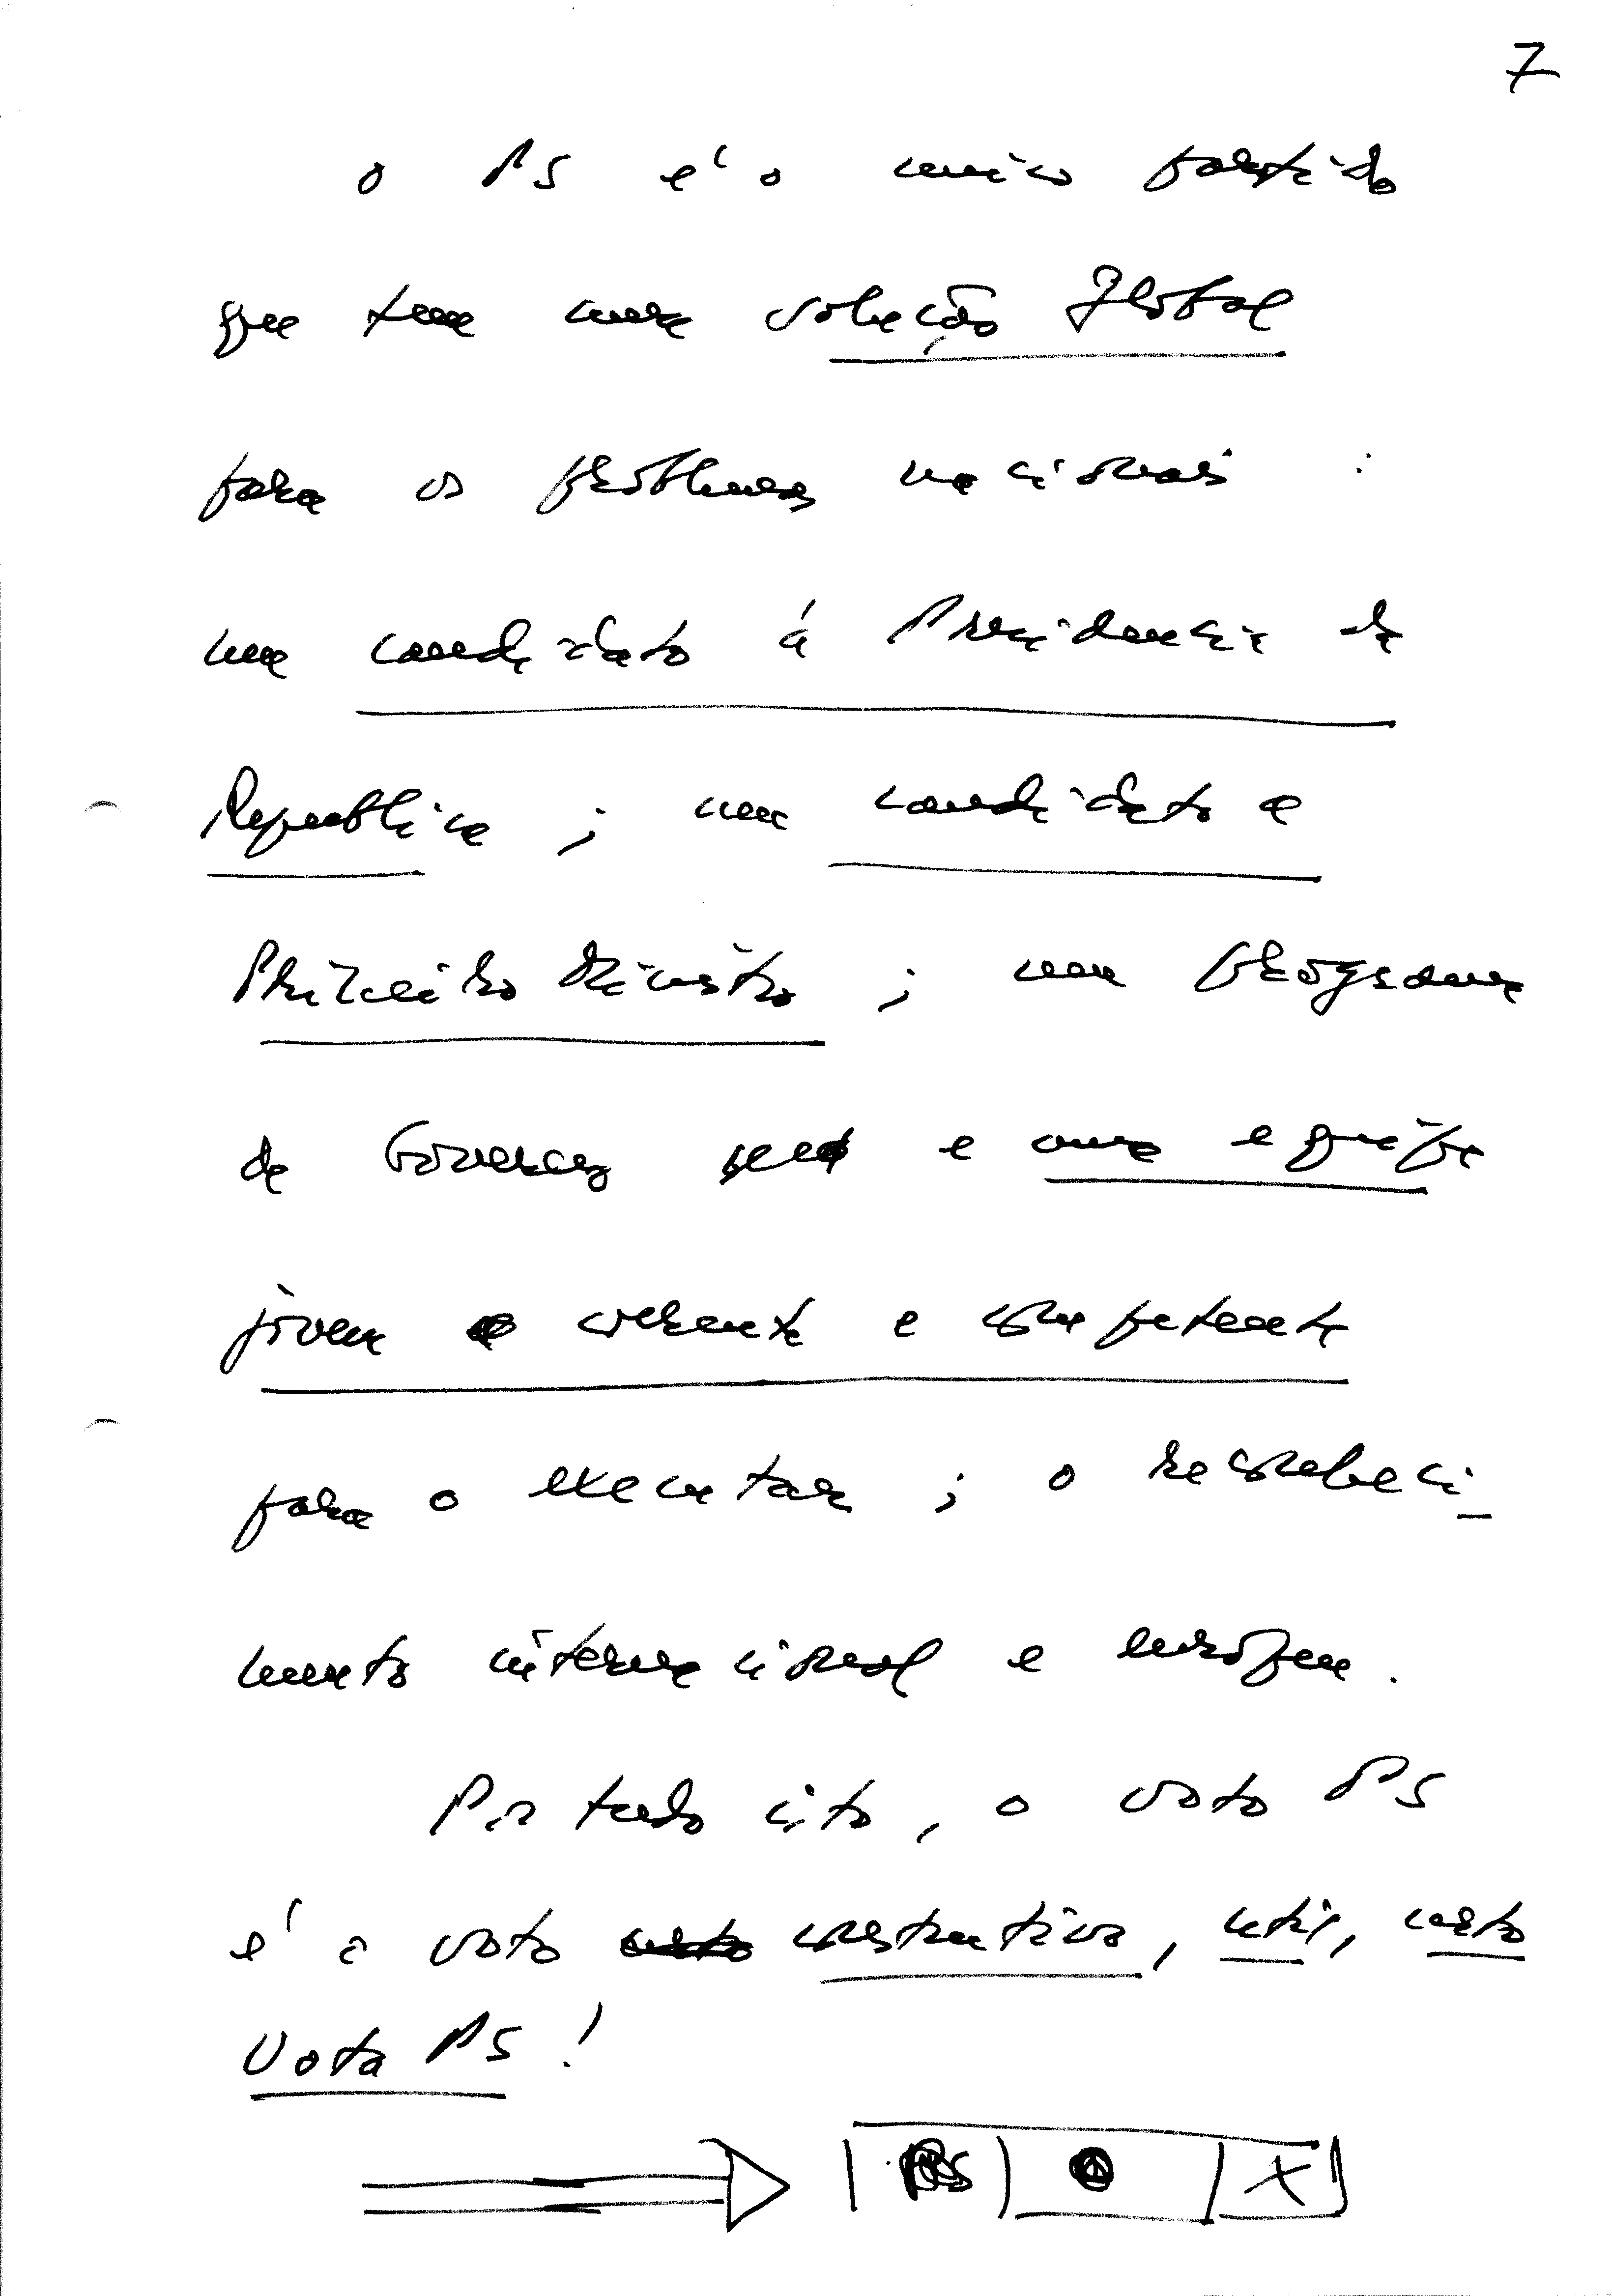 7
o PS é o unico partido
que tem uma solução global
para os problemas nacionais :
um candidato á Presidencia da
Republica ; um candidato a
Primeiro Ministro ; um programa
de Governo e uma equipe
jovem coerente e competente
para o executar ; o reconheci-
mento internacional e europeu.
Por tudo isto, o voto PS
é o voto construtivo, util, certo
Vota PS !
PS X